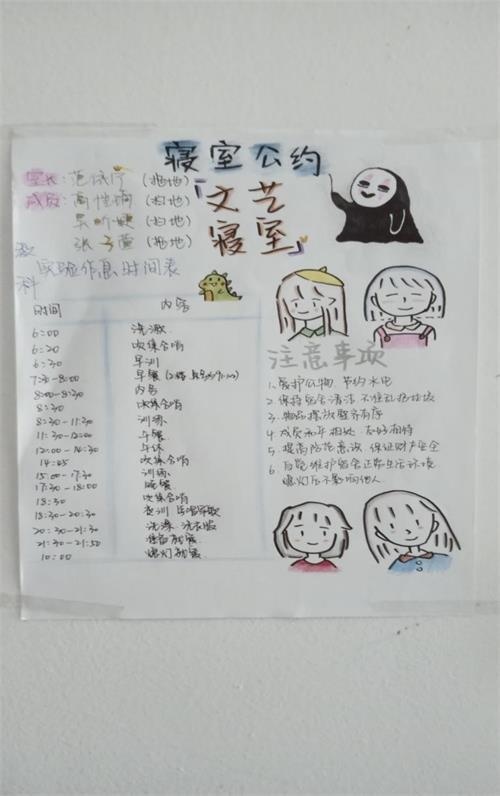 寝室公约
「文艺
寝室」
室长:范 (拖地)
成员:高 (扫地)
吴昕 (扫地)
张子萱 (拖地)
教科
实验作息时间表
时间 内容
6:00 洗漱
6:20 吹集合哨
6:30 早训
7:30-8:00 早餐
8:00-8:30 内务
8:30 吹集合哨
8:30-11:30 训练
11:30-12:00 午餐
12:00-14:30 午休
14:05 吹集合哨
15:00-17:30 训练
17:30-18:00 晚餐
18:30 吹集合哨
18:30-20:30 夜训
20:30-21:30 洗漱 洗衣服
21:30-21:50 准备就寝
10:00 熄灯就寝
注意事项
1、爱护公物 节约水电
2、保持宿舍清洁 不准乱扔垃圾
3、物品摆放整齐有序
4、成员和平相处 友好相待
5、提高防范意识 保证财产安全
6、自觉维护宿舍正常生活环境
熄灯后不影响他人.